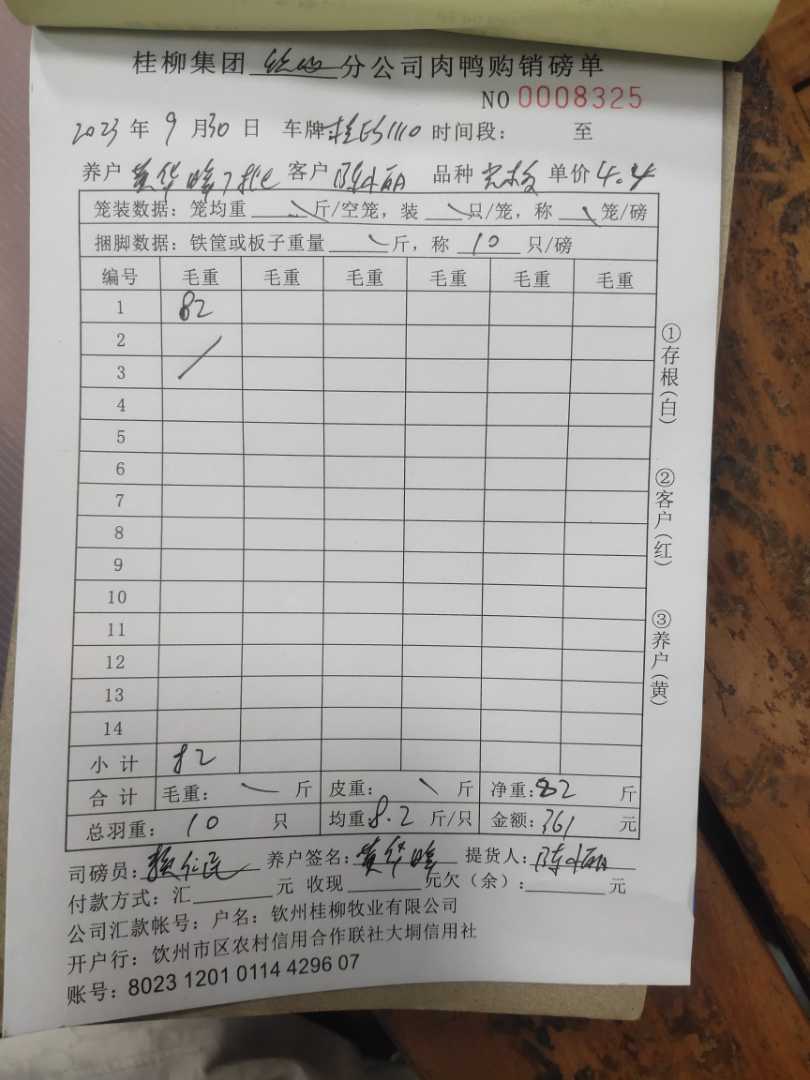 桂柳集团 分公司肉鸭购销磅单
NO 0008325
2023 年 9 月 30 日 车牌 1110 时间段： 至
养户 黄华峰 7批 客户 陈小丽 品种 单价 4.4
笼装数据：笼均重 斤/空笼，装 只/笼，称 笼/磅
捆脚数据：铁筐或板子重量 斤，称 10 只/磅
编号 毛重 毛重 毛重 毛重 毛重 毛重
1 82
2
3
4
5
6
7
8
9
10
11
12
13
14
小计 82
合计 毛重： 斤 皮重： 斤 净重：82 斤
总羽重： 10 只 均重：8.2 斤/只 金额：361 元
司磅员： 养户签名：黄华峰 提货人：陈小丽
付款方式：汇 元 收现 元欠（余）： 元
公司汇款帐号：户名：钦州桂柳牧业有限公司
开户行：钦州市区农村信用合作联社大垌信用社
账号：8023 1201 0114 4296 07
①存根（白）
②客户（红）
③养户（黄）